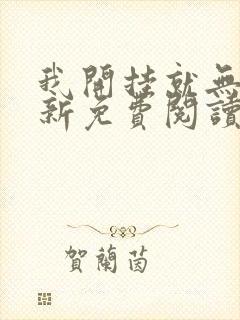 我開挂就無
新免費閱讀
賀蘭茵